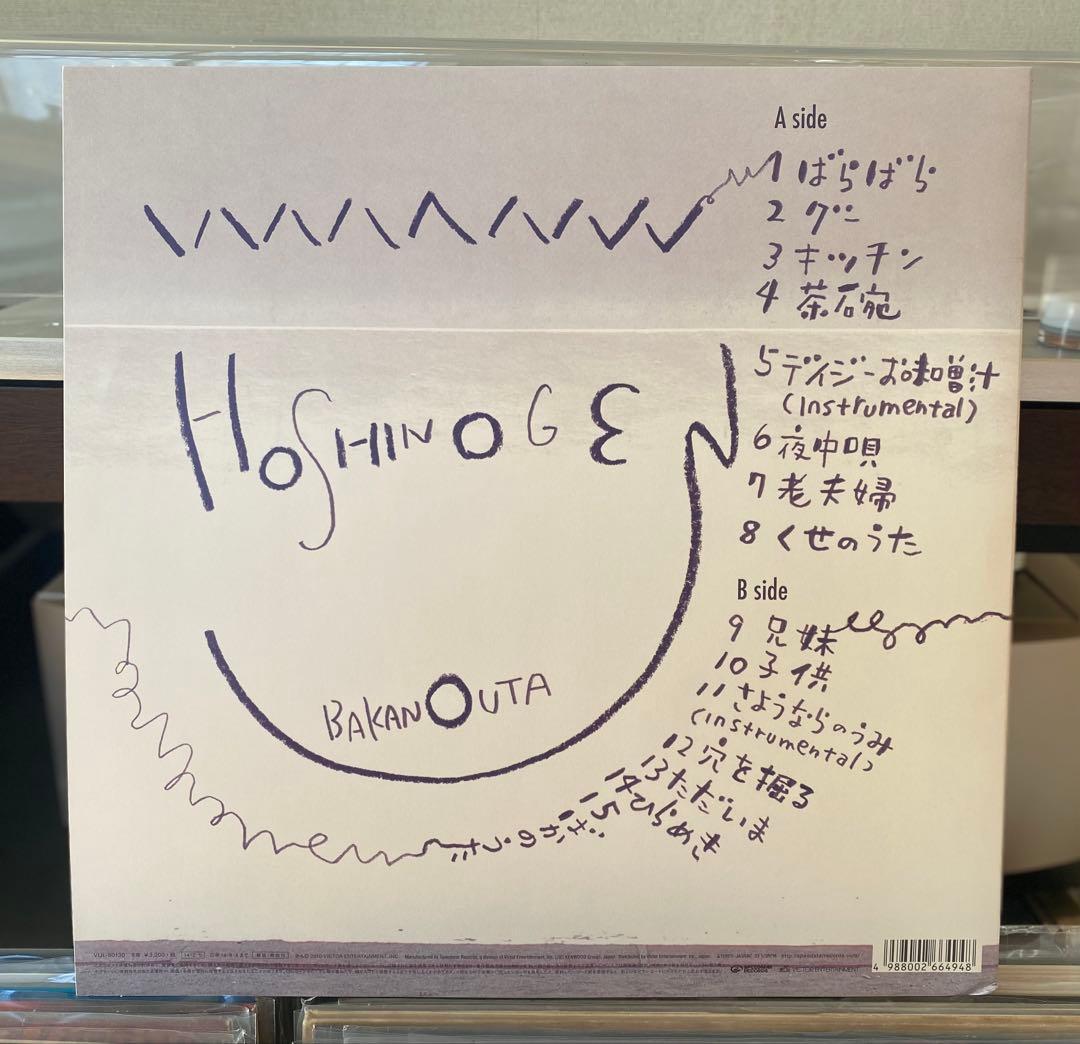 A side
1 ばらばら
2 グー
3 キッチン
4 茶碗
5 デイジーお味噌汁
(Instrumental)
6 夜中唄
7 老夫婦
8 くせのうた
HOSHINO GEN
BAKANOUTA
B side
9 兄妹
10 子供
11 さようならのうみ
(instrumental)
12 穴を掘る
13 ただいま
14 ひらめき
15 ばかのうた
4 988002 664948